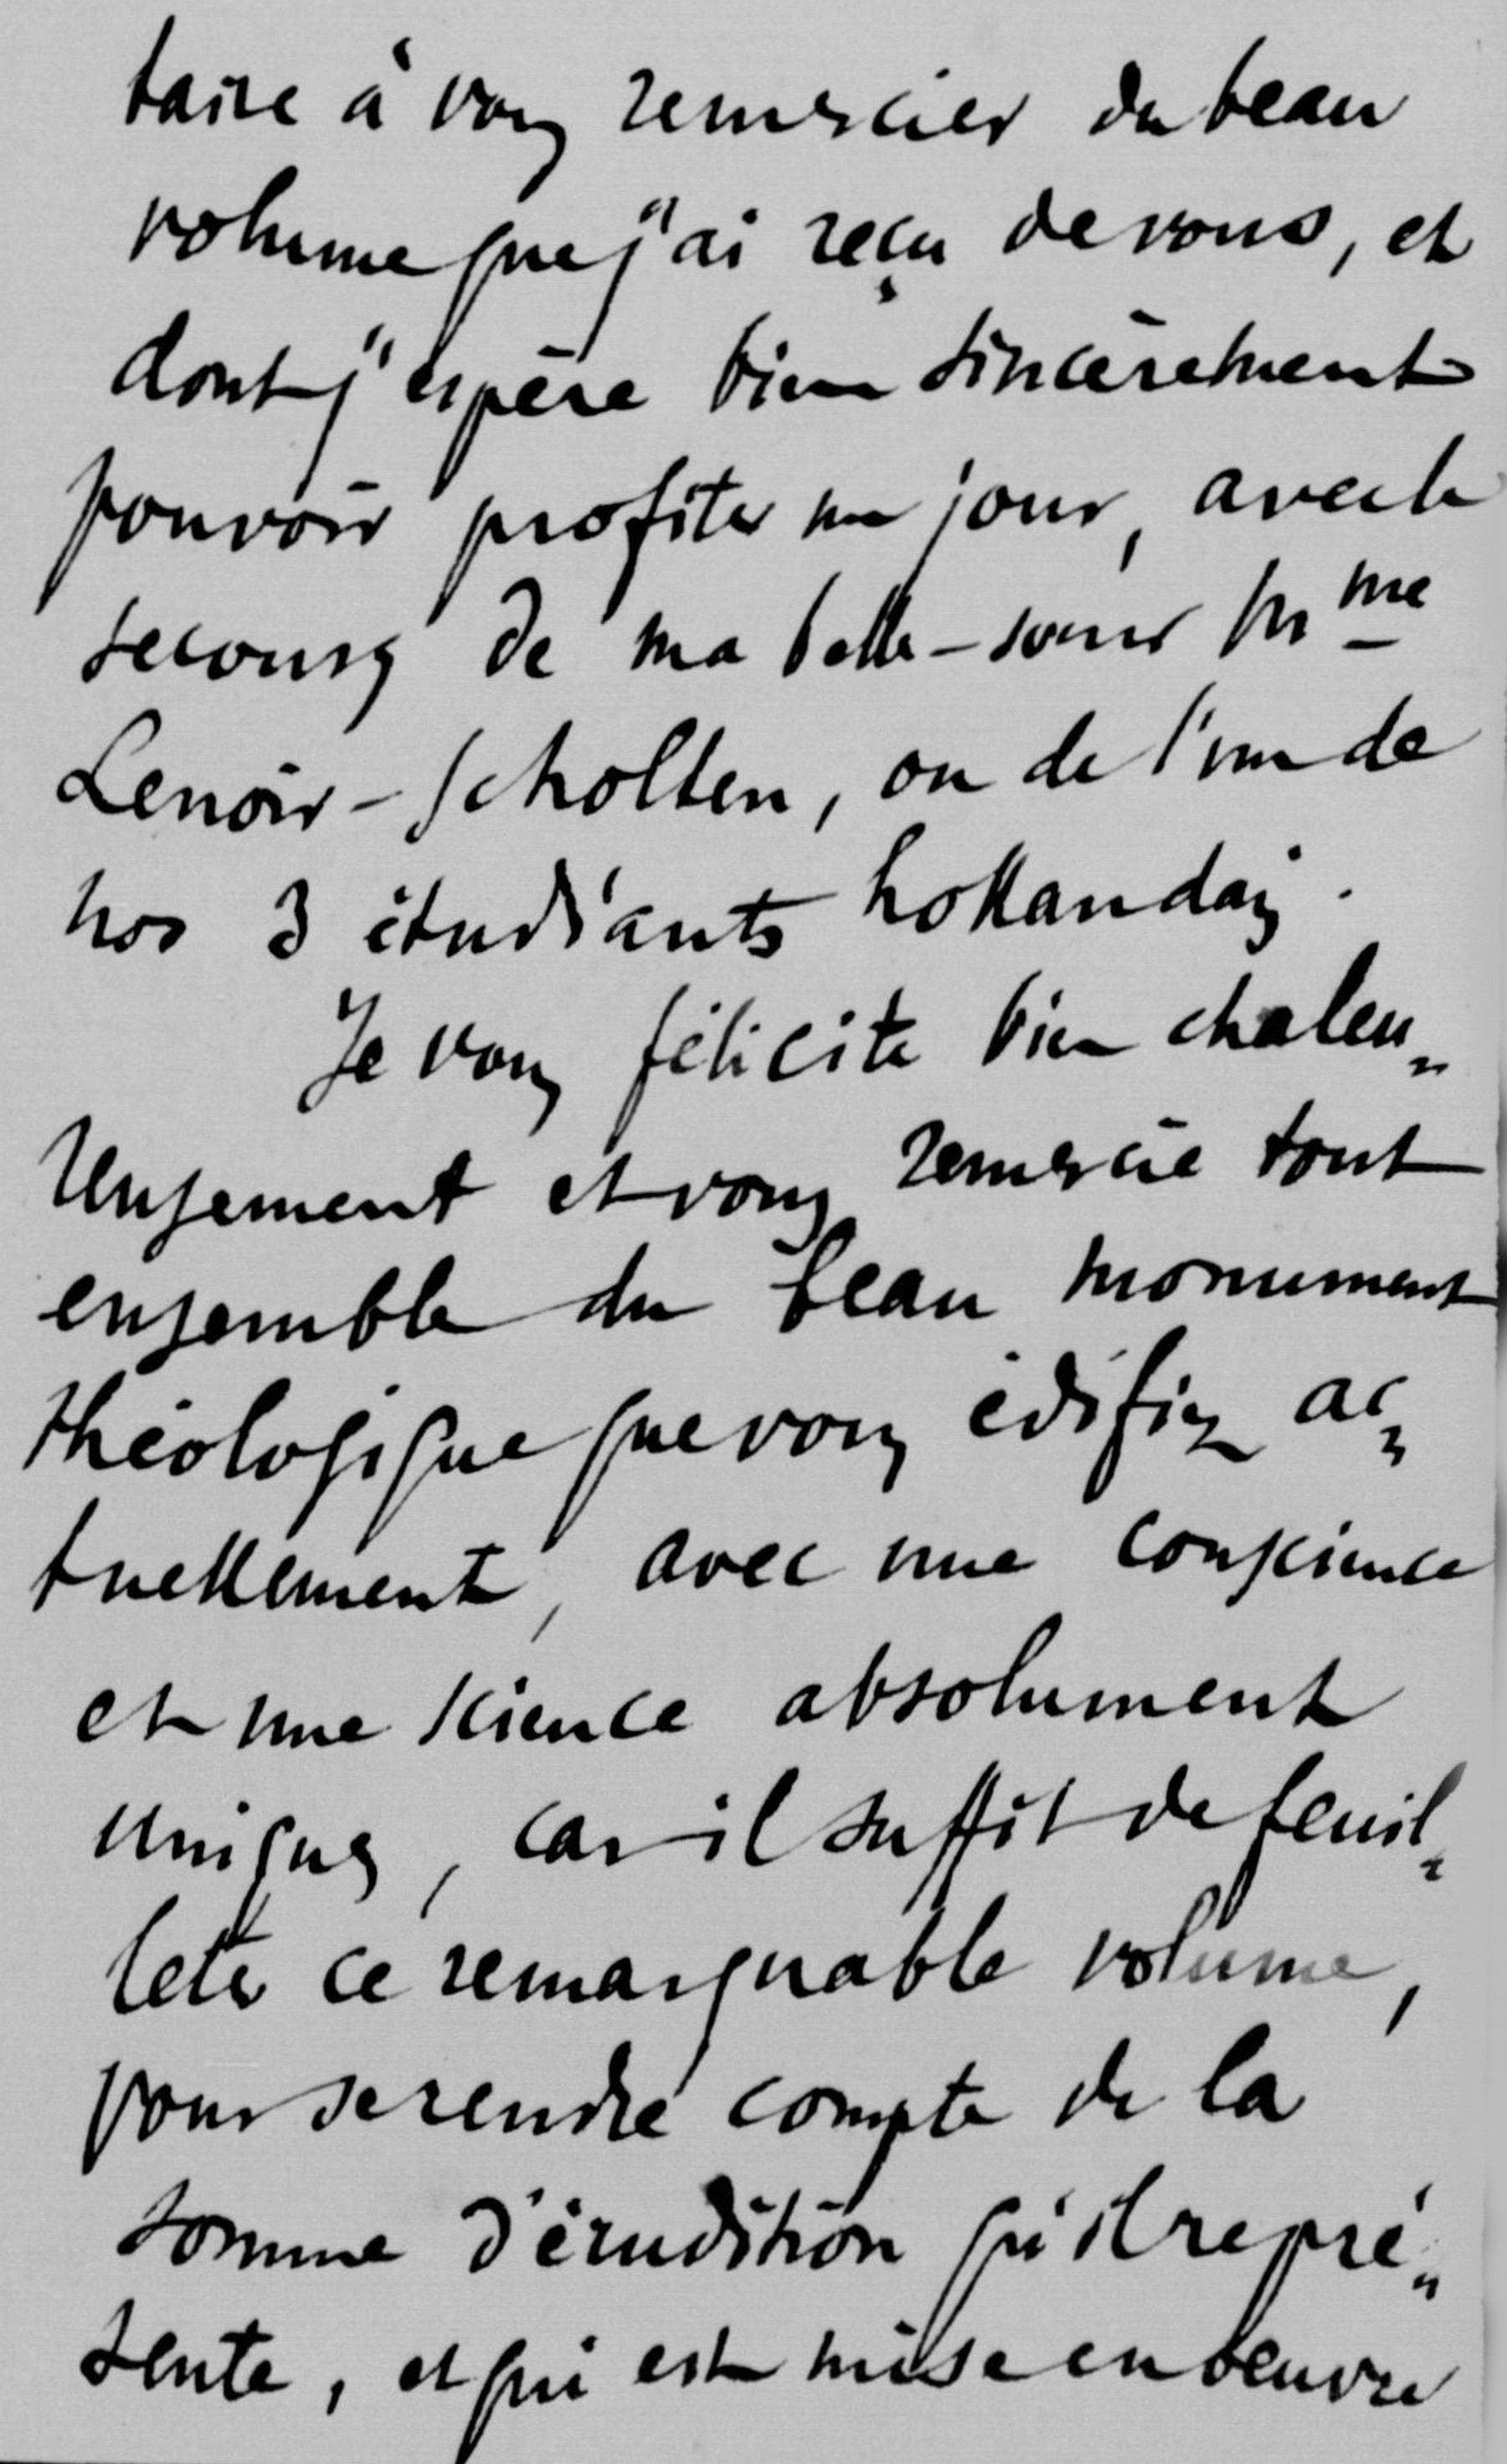 taire à vous remercier du beau
volume que j'ai reçu de vous, et
dont j'espère bien sincèrement
pouvoir profiter un jour, avec le
secours de ma belle-soeur Mme
Lenoir-Scholten, ou de l'un de
nos 3 étudiants hollandais.
Je vous félicite bien chaleu„
reusement et vous remercie tout
ensemble du beau monument
théologique que vous édifiez ac„
tuellement, avec une conscience
et une science absolument
uniques, car il suffit de feuil„
leter ce remarquable volume,
pour se rendre compte de la
somme d'érudition qu'il repré„
sente, et qui est mise en oeuvre